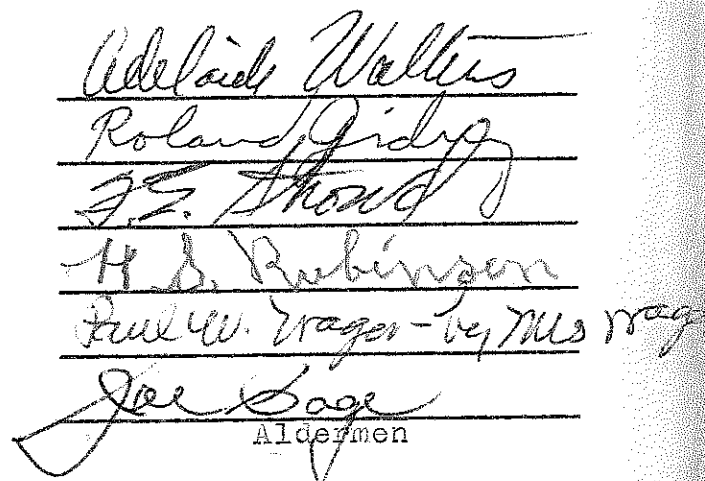 Adelaide Walters
Roland Giduz
H. S. Rubinson
Paul W. Wager - by Mrs Wag
Joe Page
Aldermen